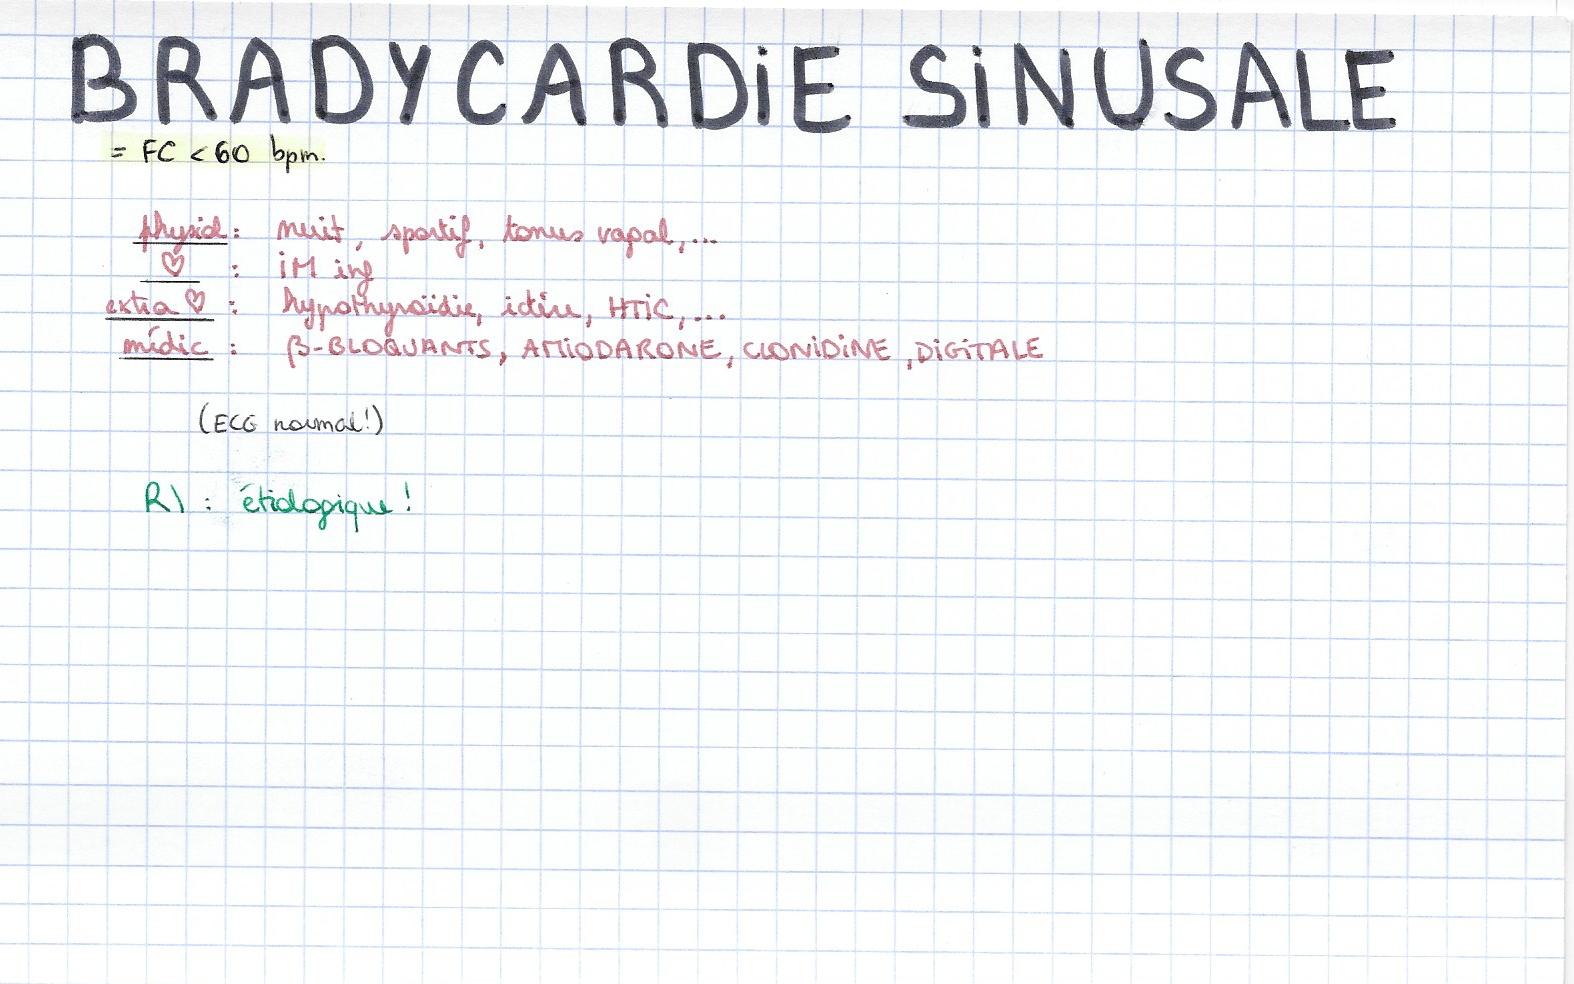 BRADYCARDiE SiNUSALE
= FC < 60 bpm.
physiol : nuit, sportif, tonus vagal, ...
♡ : iM inf
extra ♡ : hypothyroïdie, ictère, HTiC, ...
médic : β-BLOQUANTS, AMiODARONE, CLONiDiNE, DiGiTALE
(ECG normal!)
R) : étiologique !